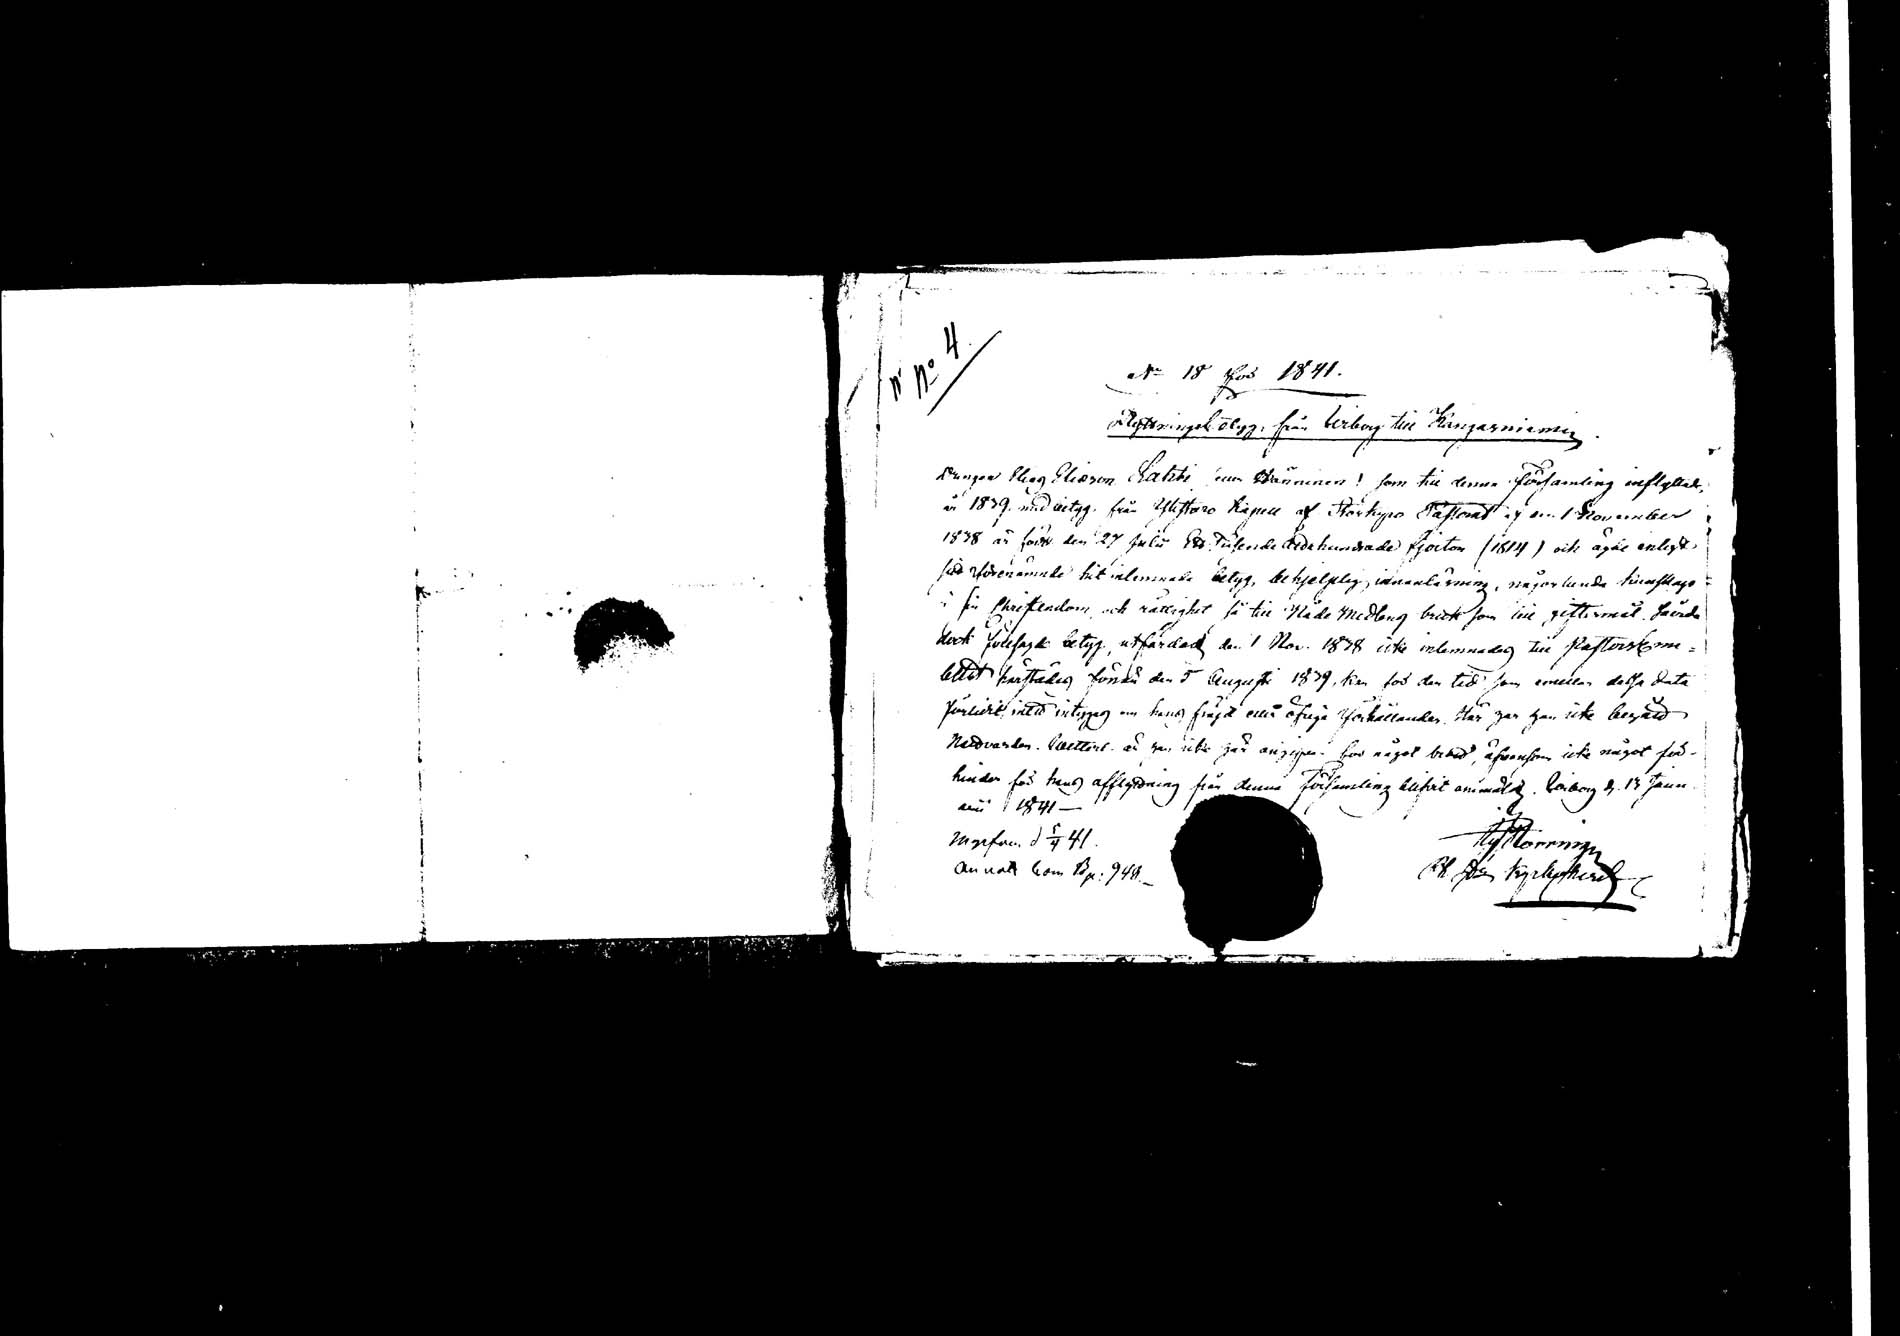 N° 4.
N° 18 för 1841.
Flyttningsbetyg från Wiborg till Kangasniemi.
Drängen Elias Eliasson som till denna Församling inflyttat,
år 1839 med betyg från Ylistaro Kapell af Storkyro Pastorat af den 1 November
1838 är född den 27 Julii Ett Tusende Adahundrade fjorton (1814) och ägde enligt
sitt förenämnde hit inlemnade betyg, behjelplig innanläsning, någorlunda kunskap
i sin Christendom och rättighet så till Nåde Medlens bruk som till giftermål.
dock föresagde betyg, utfärdadt den 1 Nov. 1838 icke inlemnades till Pastors
härstädes förrän den 5 Augusti 1839, kan för den tid som emellan dessa data
förlidit intet intygas om hans frägd eller öfriga förhållanden. Här har han icke begådt
Nattvarden. är han icke här angifven för något brott, äfvensom icke något
hinder för hans afflyttning från denna Församling blifvit anmäldt. Wiborg d. 13 Janu
arii 1841 —
d 5/4 41.
p: 948.